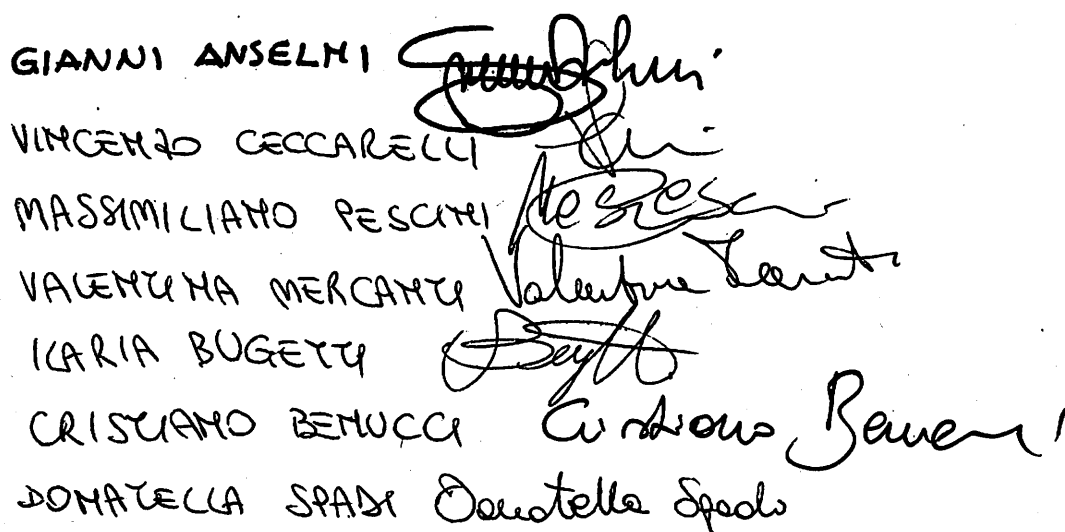 GIANNI ANSELMI
VINCENZO CECCARELLI
MASSIMILIANO PESCINI
VALENTINA MERCANTI Valentina Mercanti
ILARIA BUGETTI
CRISTIANO BENUCCI Cristiano Benucci
DONATELLA SPADI Donatella Spadi